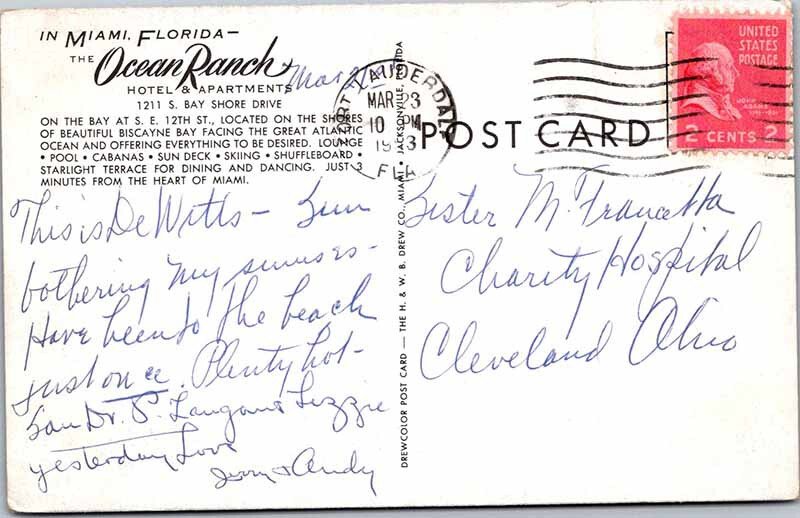 IN MIAMI, FLORIDA—
THE Ocean Ranch
HOTEL & APARTMENTS
1211 S. BAY SHORE DRIVE
ON THE BAY AT S. E. 12TH ST., LOCATED ON THE SHORES
OF BEAUTIFUL BISCAYNE BAY FACING THE GREAT ATLANTIC
OCEAN AND OFFERING EVERYTHING TO BE DESIRED. LOUNGE
• POOL • CABANAS • SUN DECK • SKIING • SHUFFLEBOARD •
STARLIGHT TERRACE FOR DINING AND DANCING. JUST 3
MINUTES FROM THE HEART OF MIAMI.
This is DeWitts — Sun
bothering my sinuses -
Have been to the beach
just once. Plenty hot -
Saw Dr. P. Langan & Lizzie
yesterday Love
Jerry & Andy
DREWCOLOR POST CARD — THE H. & W. B. DREW CO., MIAMI • JACKSONVILLE, FLORIDA
FORT LAUDERDALE
MAR 23
10 PM
FLA
POST CARD
UNITED
STATES
POSTAGE
JOHN
ADAMS
2 CENTS 2
Sister M. Francetta
Charity Hospital
Cleveland Ohio